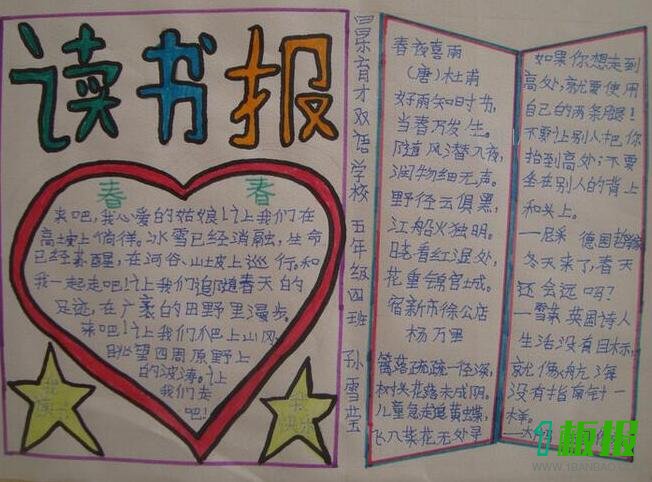 读书报
春 春
来吧,我心爱的姑娘!让我们在
高坡上徜徉。冰雪已经消融,生命
已经苏醒,在河谷、山坡上巡行,和
我一起走吧!让我们追随春天的
足迹,在广袤的田野里漫步。
来吧!让我们爬上山冈,
眺望四周原野上
的波涛。让
我们走
吧!
我
读书
快乐
育才双语学校 五年级四班 孙雪莹
春夜喜雨
(唐)杜甫
好雨知时书,
当春万发生。
随风潜入夜,
润物细无声。
野径云俱黑,
江船火独明。
晓看红湿处,
花重锦官城。
宿新市徐公店
杨万里
篱落疏疏一径深,
树头花落未成阴。
儿童急走追黄蝶,
飞入菜花无处寻
如果你想走到
高处,就要使用
自己的两条腿!
不要让别人把你
抬到高处;不要
坐在别人的背上
和头上。
—尼采 德国哲学家
冬天来了,春天
还会远吗?
—雪莱 英国诗人
生活没有目标,
就像航海
没有指南针一
样。
1板报
WWW.1BANBAO.COM